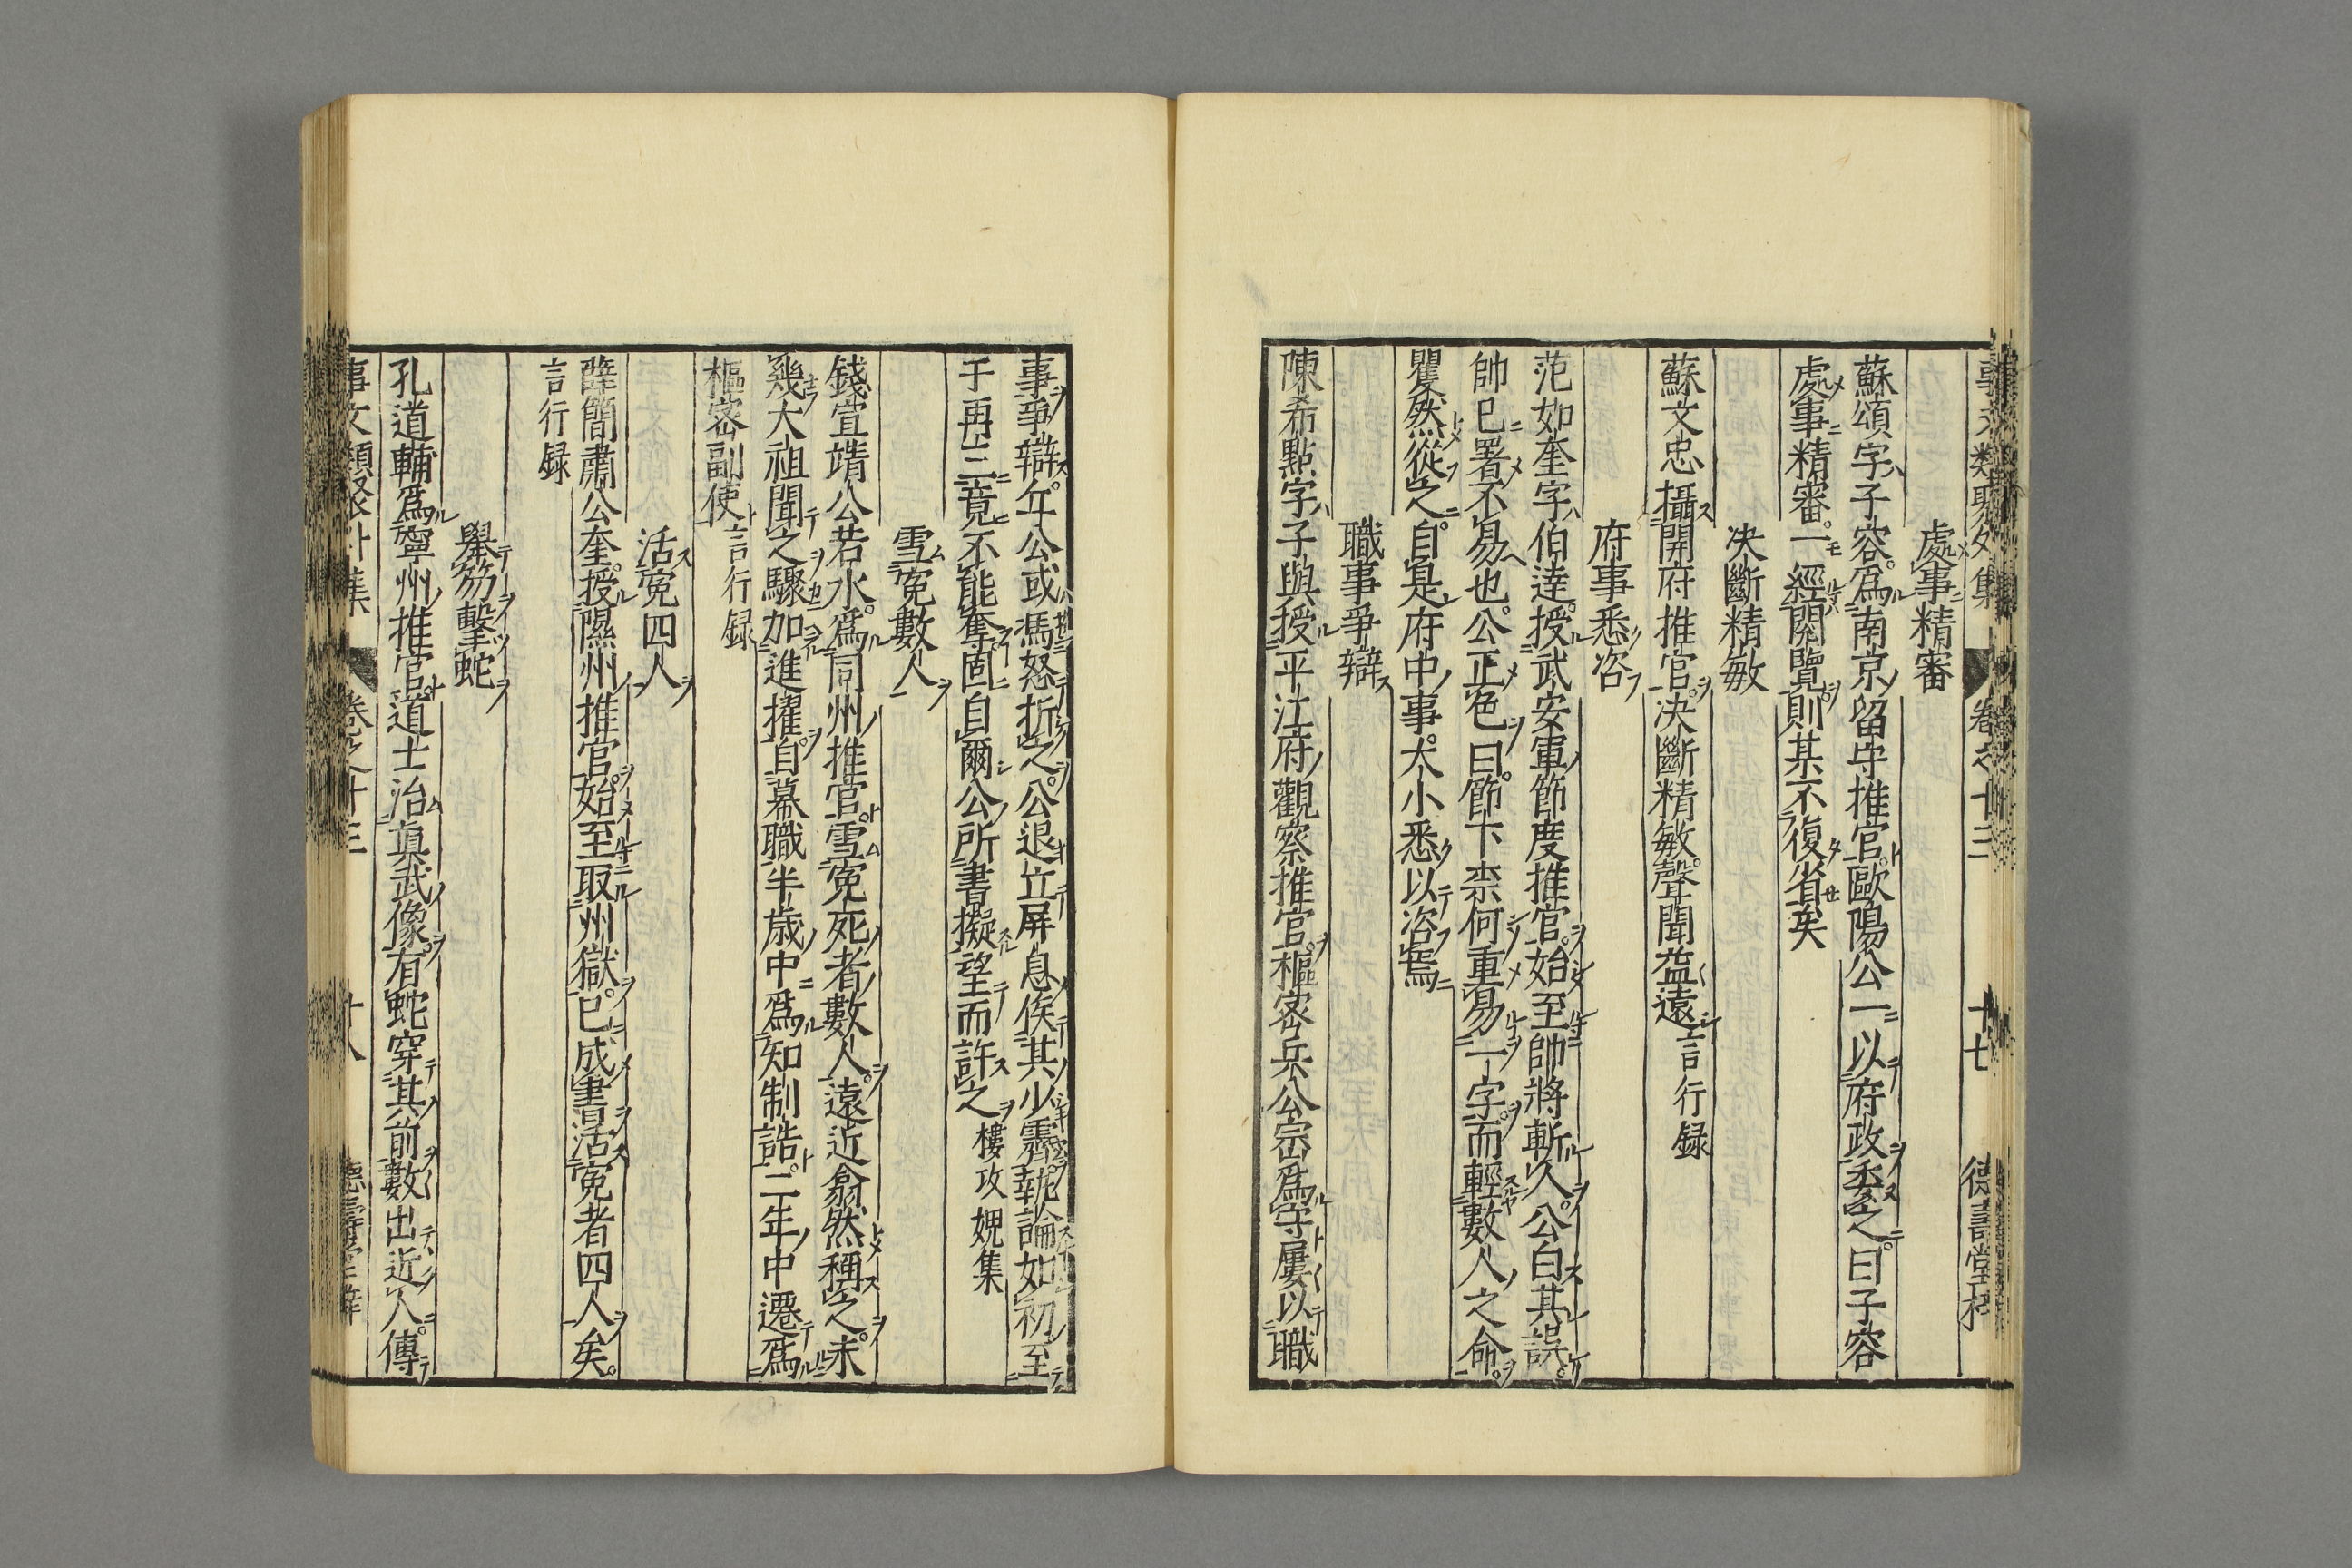 事文類聚外集 卷之十三 十七 德壽堂梓
處事精審
蘇頌字子容爲南京留守推官歐陽公一以府政委之曰子容
處事精審一經閱覽則某不復省矣
决斷精敏
蘇文忠攝開府推官决斷精敏聲聞益遠言行録
府事悉咨
范如奎字伯逹授武安軍節度推官始至帥將斬人公白其誤
帥已署不易也公正色曰節下柰何重易一字而輕數人之命
矍然從之自是府中事大小悉以咨焉
職事爭辯
陳希點字子與授平江府觀察推官樞密兵公宗爲守屢以職
事爭辯年公或馮怒折之公退立屏息俟其少霽執論如初至
于再三竟不能奪固自爾公所書擬望而許之樓攻媿集
雪寃數人
錢宣靖公若水爲同州推官雪寃死者數人遠近翕然稱之未
幾太祖聞之驟加進擢自幕職半歳中爲知制誥二年中遷爲
樞密副使言行録
活寃四人
薛簡肅公奎授隰州推官始至取州獄已成書活寃者四人矣
言行録
舉笏擊蛇
孔道輔爲寧州推官道士治眞武像有蛇穿其前數出近人傳
事文類聚外集 卷之十三 十八